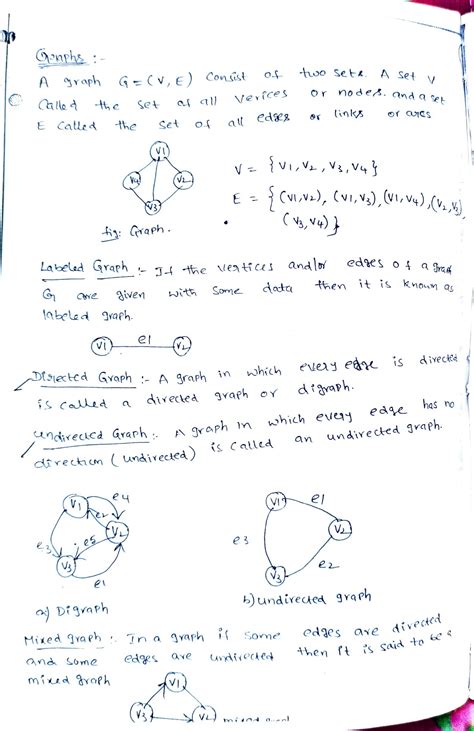 Graphs :-
A graph G=(V,E) Consist of two sets. A set V
Called the set of all verices or nodes. and a set
E called the set of all edges or links or arcs
V1
V4
V2
V3
V = {V1,V2,V3,V4}
E = {(V1,V2), (V1,V3),(V1,V4),(V2,V3)
(V3,V4)}
fig: Graph.
Labeled Graph :- If the vertices and/or edges of a graph
G are given with some data then it is known as
labeled graph.
V1 e1 V2
Directed Graph :- A graph in which every edge is directed
is called a directed graph or digraph.
undirected Graph :- A graph in which every edge has no
direction (undirected) is called an undirected graph.
V1 e4
e2 V2
e3 e5
V3 e1
a) Digraph
V1 e1
V2
e3
e2
V3
b) undirected graph
Mixed graph :- In a graph if some edges are directed
and some edges are undirected then it is said to be a
mixed graph
V1
V3 V2 mixed